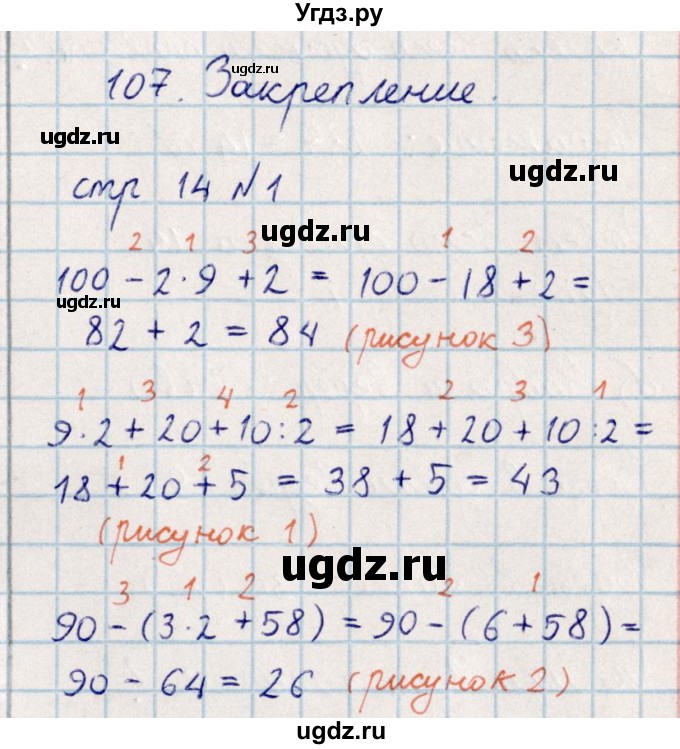 Угдз.ру
ugdz.ru
107. Закрепление.
ugdz.ru
ugdz.ru
стр 14 №1
ugdz.ru
2 1 3 1 2
100 - 2·9 + 2 = 100 - 18 + 2 =
ugdz.ru
82 + 2 = 84 (рисунок 3)
1 3 4 2 2 3 1
9·2 + 20 + 10:2 = 18 + 20 + 10:2 =
1 2
18 + 20 + 5 = 38 + 5 = 43
(рисунок 1)
ugdz.ru
3 1 2 2 1
90 - (3·2 + 58) = 90 - (6 + 58) =
90 - 64 = 26 (рисунок 2)
ugdz.ru